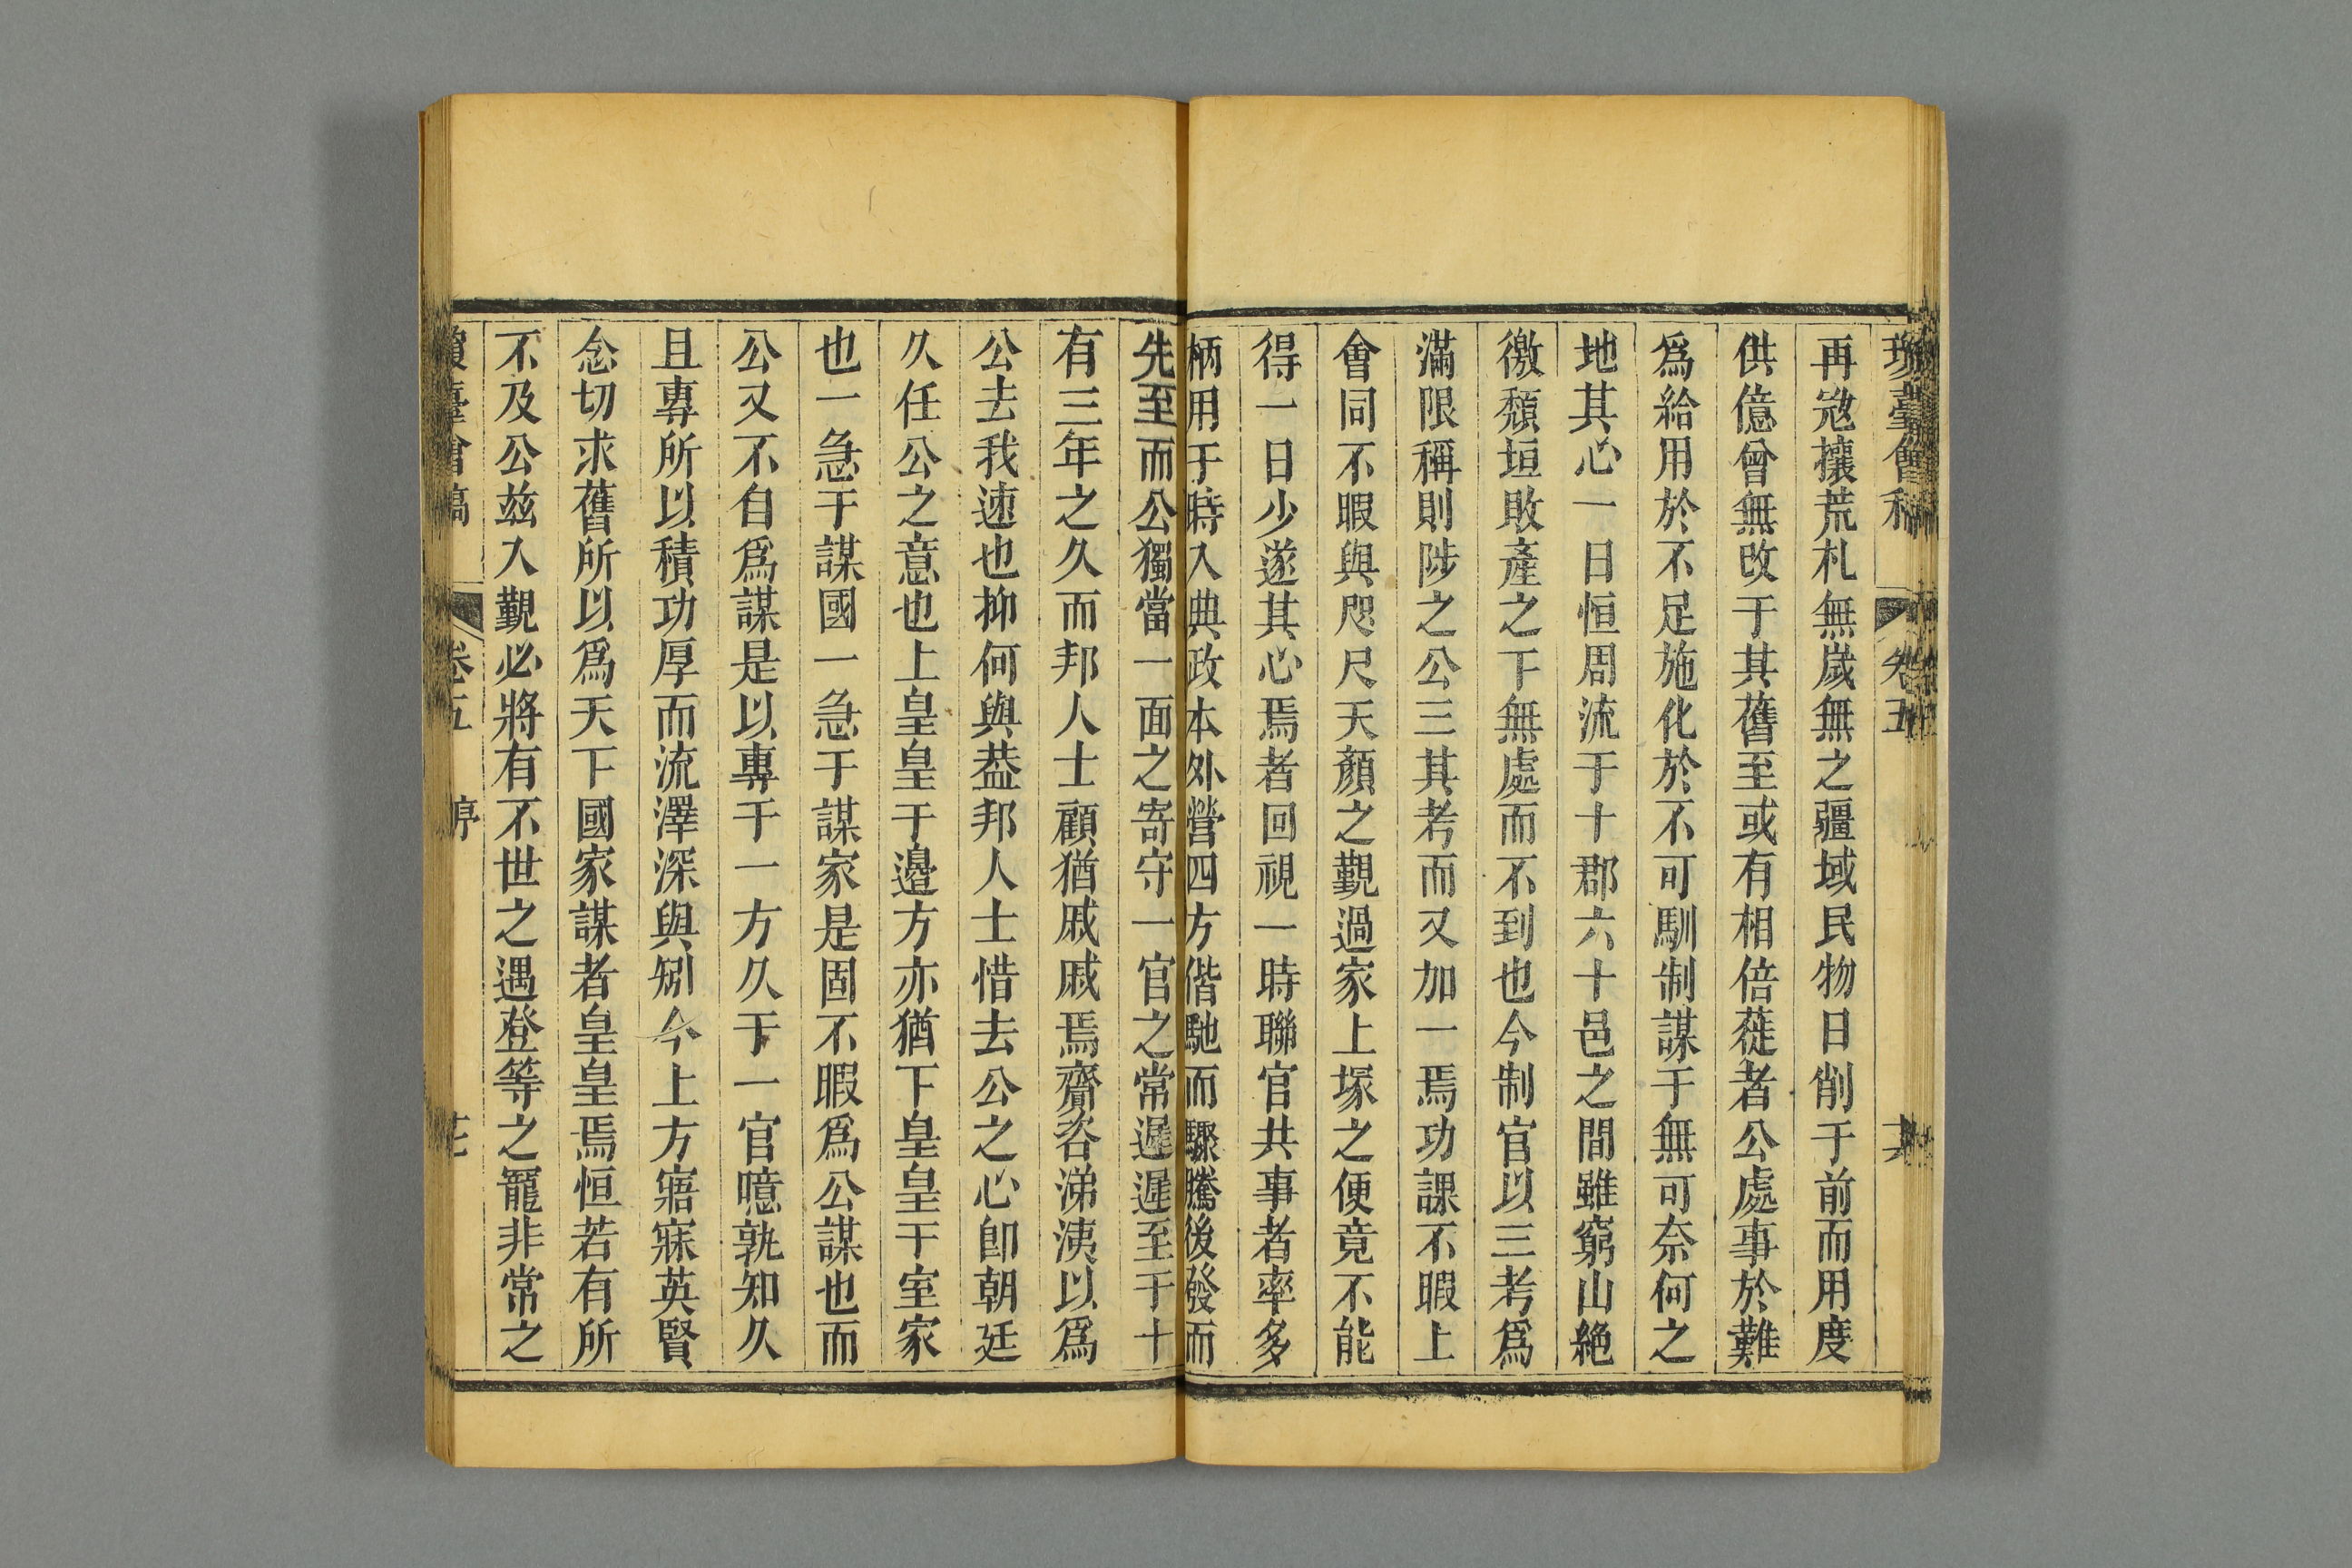 臺會稿 卷五
再冦攘荒札無歲無之疆域民物日削于前而用度
供億曾無改于其舊至或有相倍蓰者公處事於難
爲給用於不足施化於不可馴制謀于無可奈何之
地其心一日恒周流于十郡六十邑之間雖窮山絶
徼頹垣敗產之下無處而不到也今制官以三考爲
滿限稱則陟之公三其考而又加一焉功課不暇上
會同不暇與咫尺天顏之覲過家上塚之便竟不能
得一日少遂其心焉者回視一時聯官共事者率多
柄用于時入典政本外營四方偕馳而驟騰後發而
先至而公獨當一面之寄守一官之常遲遲至于十
有三年之久而邦人士顧猶戚戚焉齎咨涕洟以爲
公去我速也抑何與葢邦人士惜去公之心卽朝廷
久任公之意也上皇皇于邊方亦猶下皇皇于室家
也一急于謀國一急于謀家是固不暇爲公謀也而
公又不自爲謀是以專于一方久于一官噫孰知久
且專所以積功厚而流澤深與矧今上方寤寐英賢
念切求舊所以爲天下國家謀者皇皇焉恒若有所
不及公茲入覲必將有不世之遇登等之寵非常之
臺會稿 卷五